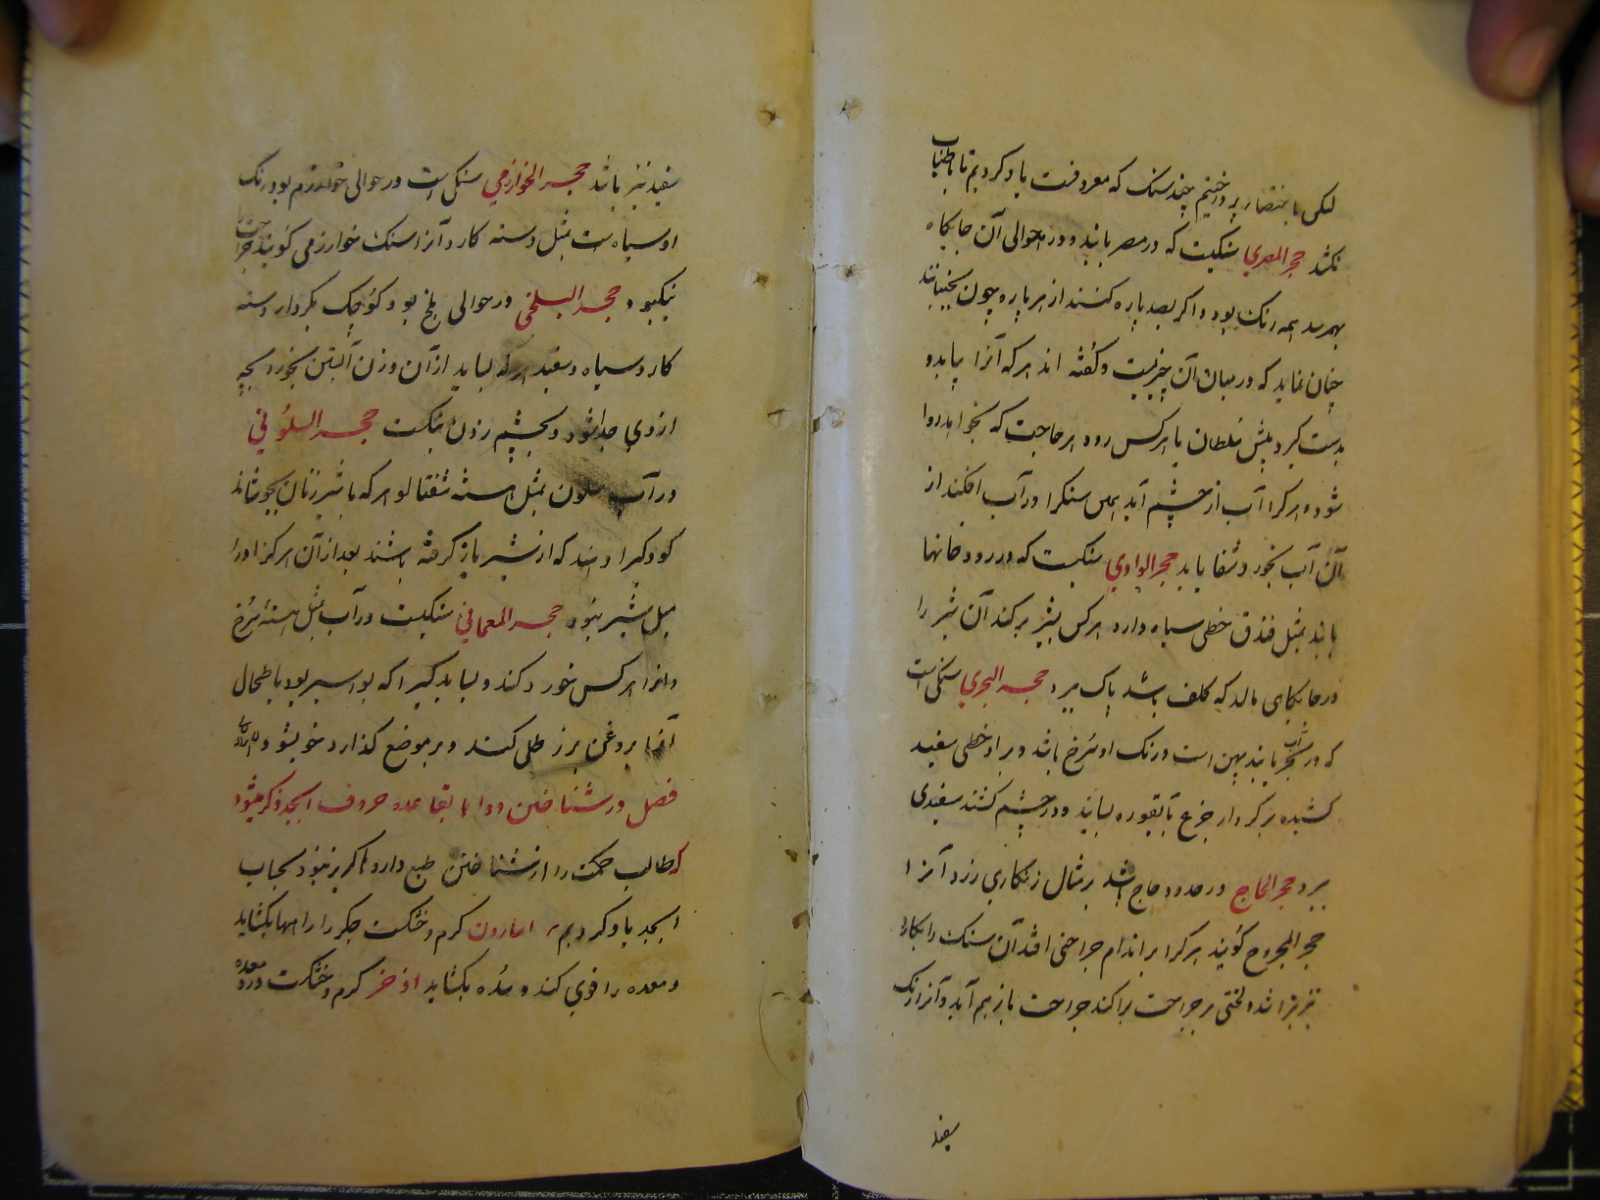 لکن باختصار پرداختیم چند سنک که معروفست یاد کردیم تا باطناب
نکشد حجر المصری سنکیست که در مصر یابند و در حوالی آن جایکاه
بهر سد همه رنک بود و اکر بصد پاره کنند از هر پاره چون بجنبانند
چنان نماید که در میان آن چیزیست و کفته اند هر که آنرا بیابد و
بدست کیرد پیش سلطان یا هر کس رود هر حاجت که بخواهد روا
شود و هر کرا آب از چشم آید این سنک را در آب افکند از
آن آب بخورد شفا یابد حجر الوادی سنکیست که در رودخانها
یابند مثل فندق خطی سیاه دارد هر کس بشیر بر کند آن شیر را
در جایکاهی مالد که کلف باشد پاک ببرد حجر البحری سنکی است
که در بحر یابند پهن است و رنک او سرخ باشد و بر او خطی سفید
کشیده بر کردار جزع بسایند و در چشم کشند سفیدی
ببرد حجر الحاج در حدود حاج باشد بر مثال زنکاری زرد آنرا
حجر المجروح کویند هر کرا بر اندام جراحتی افتد آن سنک را بکارد
تیز بتراشد و لختی بر جراحت پراکند جراحت باز هم آید و آنرا رنک
سفید
سفید نیز باشد حجر الخوارزمی سنکی است در حوالی خوارزم بود رنک
او سیاه است مثل دسته کارد آنرا سنک خوارزمی کویند
نیکو بود حجر البلخی در حوالی بلخ بود کوچک بکردار دسته
کارد سیاه و سفید هر که بساید از آن وزن آبستن بخورد بچه
از وی جدا شود و بچشم زدن حجر السلونی
در آب سلون مثل هسته شفتالو هر که با شیر زنان بجوشاند
کودکیرا دهند که از شیر باز کرفته باشند بعد از آن هرکز او را
میل شیر نبود حجر المعمانی سنکیست در آب مثل هسته سرخ
و آنرا هر کس خورد کند و بساید کسیرا که بواسیر بود با طحال
آنرا بروغن بزر طلی کند و بر موضع کذارد خوب شود
فصل در شناختن دواها بقاعده حروف ابجد ذکر میشود
که طالب حکمت را از شناختن طبع دارو ناکزیر نبود بحساب
ابجد یاد کردیم اسارون کرم و خشکست جکر را راهها بکشاید
و معده را قوی کند و سده بکشاید اذخر کرم و خشکست و درد معده